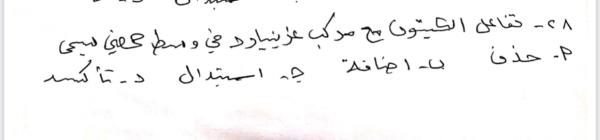 ٢٨- تفاعل الكيتون مع مركب غرينيارد في وسط حمضي يسمى
٩- حذف ب- اضافة ج- استبدال د- تأكسد